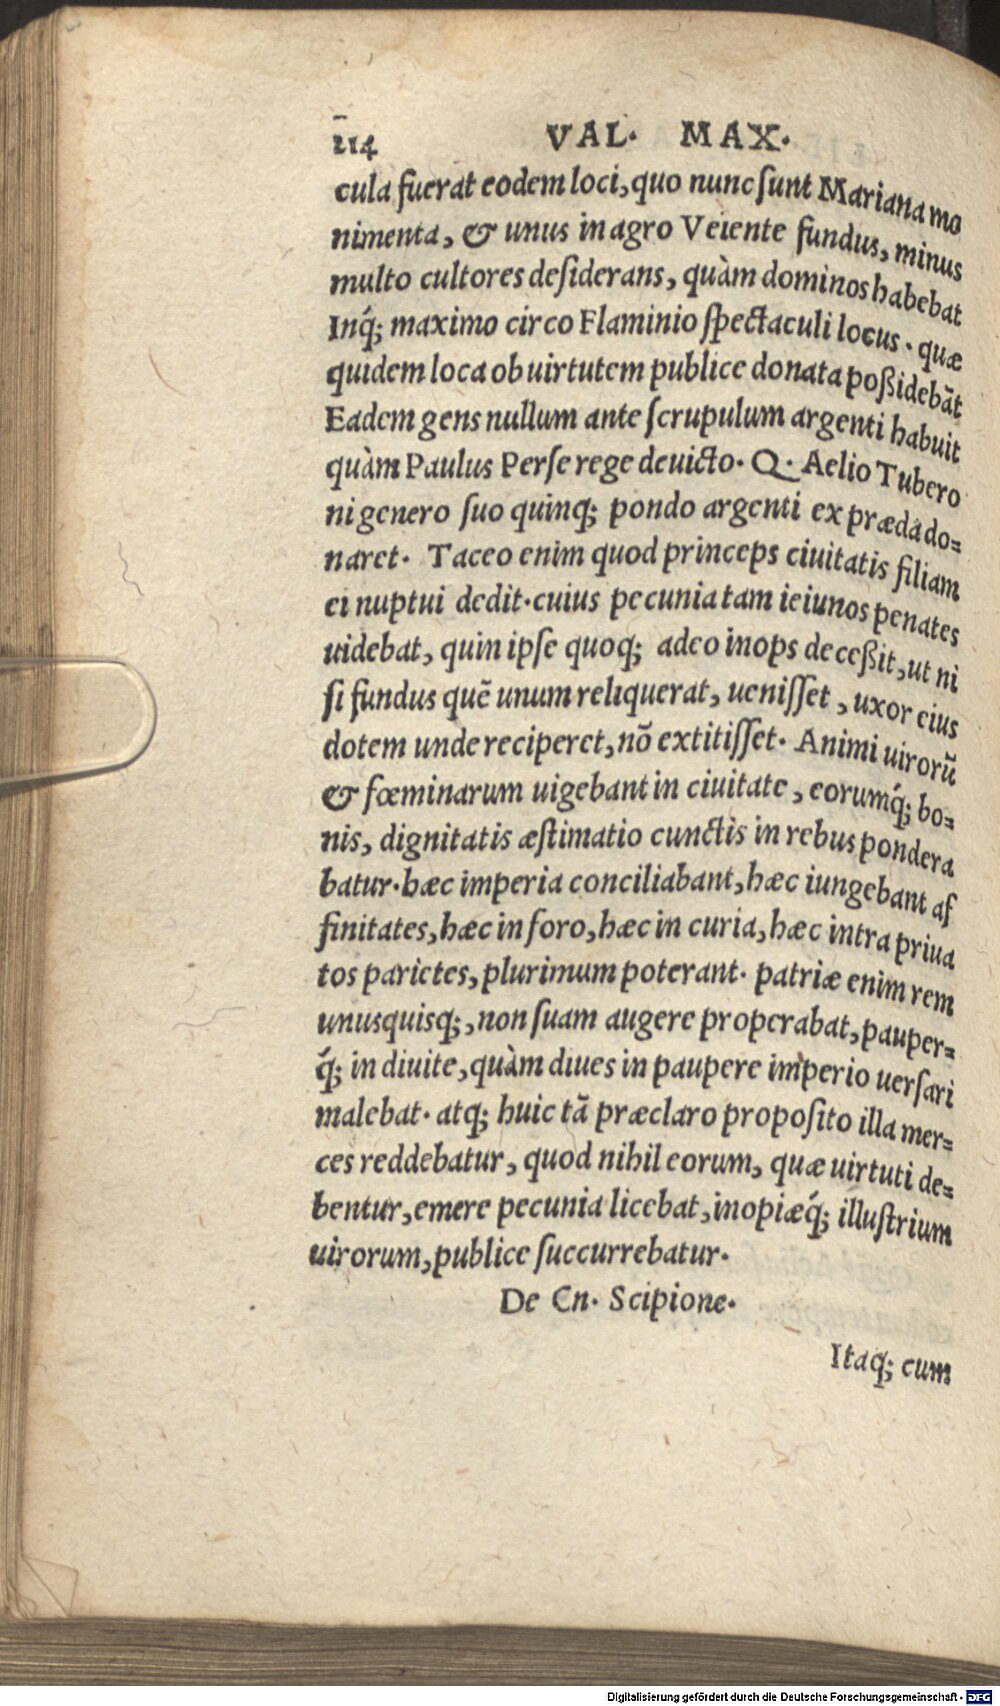 214 VAL. MAX.
cula fuerat eodem loci, quo nunc ſunt Mariana mo
nimenta, & unus in agro Veiente fundus, minus
multo cultores deſiderans, quàm dominos habebat
Inq́; maximo circo Flaminio ſpectaculi locus. quæ
quidem loca ob uirtutem publice donata poßidebāt
Eadem gens nullum ante ſcrupulum argenti habuit
quàm Paulus Perſe rege deuicto. Q. Aelio Tubero
ni genero ſuo quinq; pondo argenti ex præda do=
naret. Taceo enim quod princeps ciuitatis filiam
ei nuptui dedit. cuius pecunia tam ieiunos penates
uidebat, quin ipſe quoq; adeo inops deceßit, ut ni
ſi fundus quē unum reliquerat, ueniſſet, uxor eius
dotem unde reciperet, nō extitiſſet. Animi uirorū
& fœminarum uigebant in ciuitate, eorumq́; bo=
nis, dignitatis æſtimatio cunctis in rebus pondera
batur. hæc imperia conciliabant, hæc iungebant af
finitates, hæc in foro, hæc in curia, hæc intra priua
tos parietes, plurimum poterant. patriæ enim rem
unusquisq;, non ſuam augere properabat, pauper=
q́; in diuite, quàm diues in paupere imperio uerſari
malebat. atq; huic tā præclaro propoſito illa mer=
ces reddebatur, quod nihil eorum, quæ uirtuti de=
bentur, emere pecunia licebat, inopiæq́; illuſtrium
uirorum, publice ſuccurrebatur.
De Cn. Scipione.
Itaq; cum
Digitalisierung gefördert durch die Deutsche Forschungsgemeinschaft - DFG